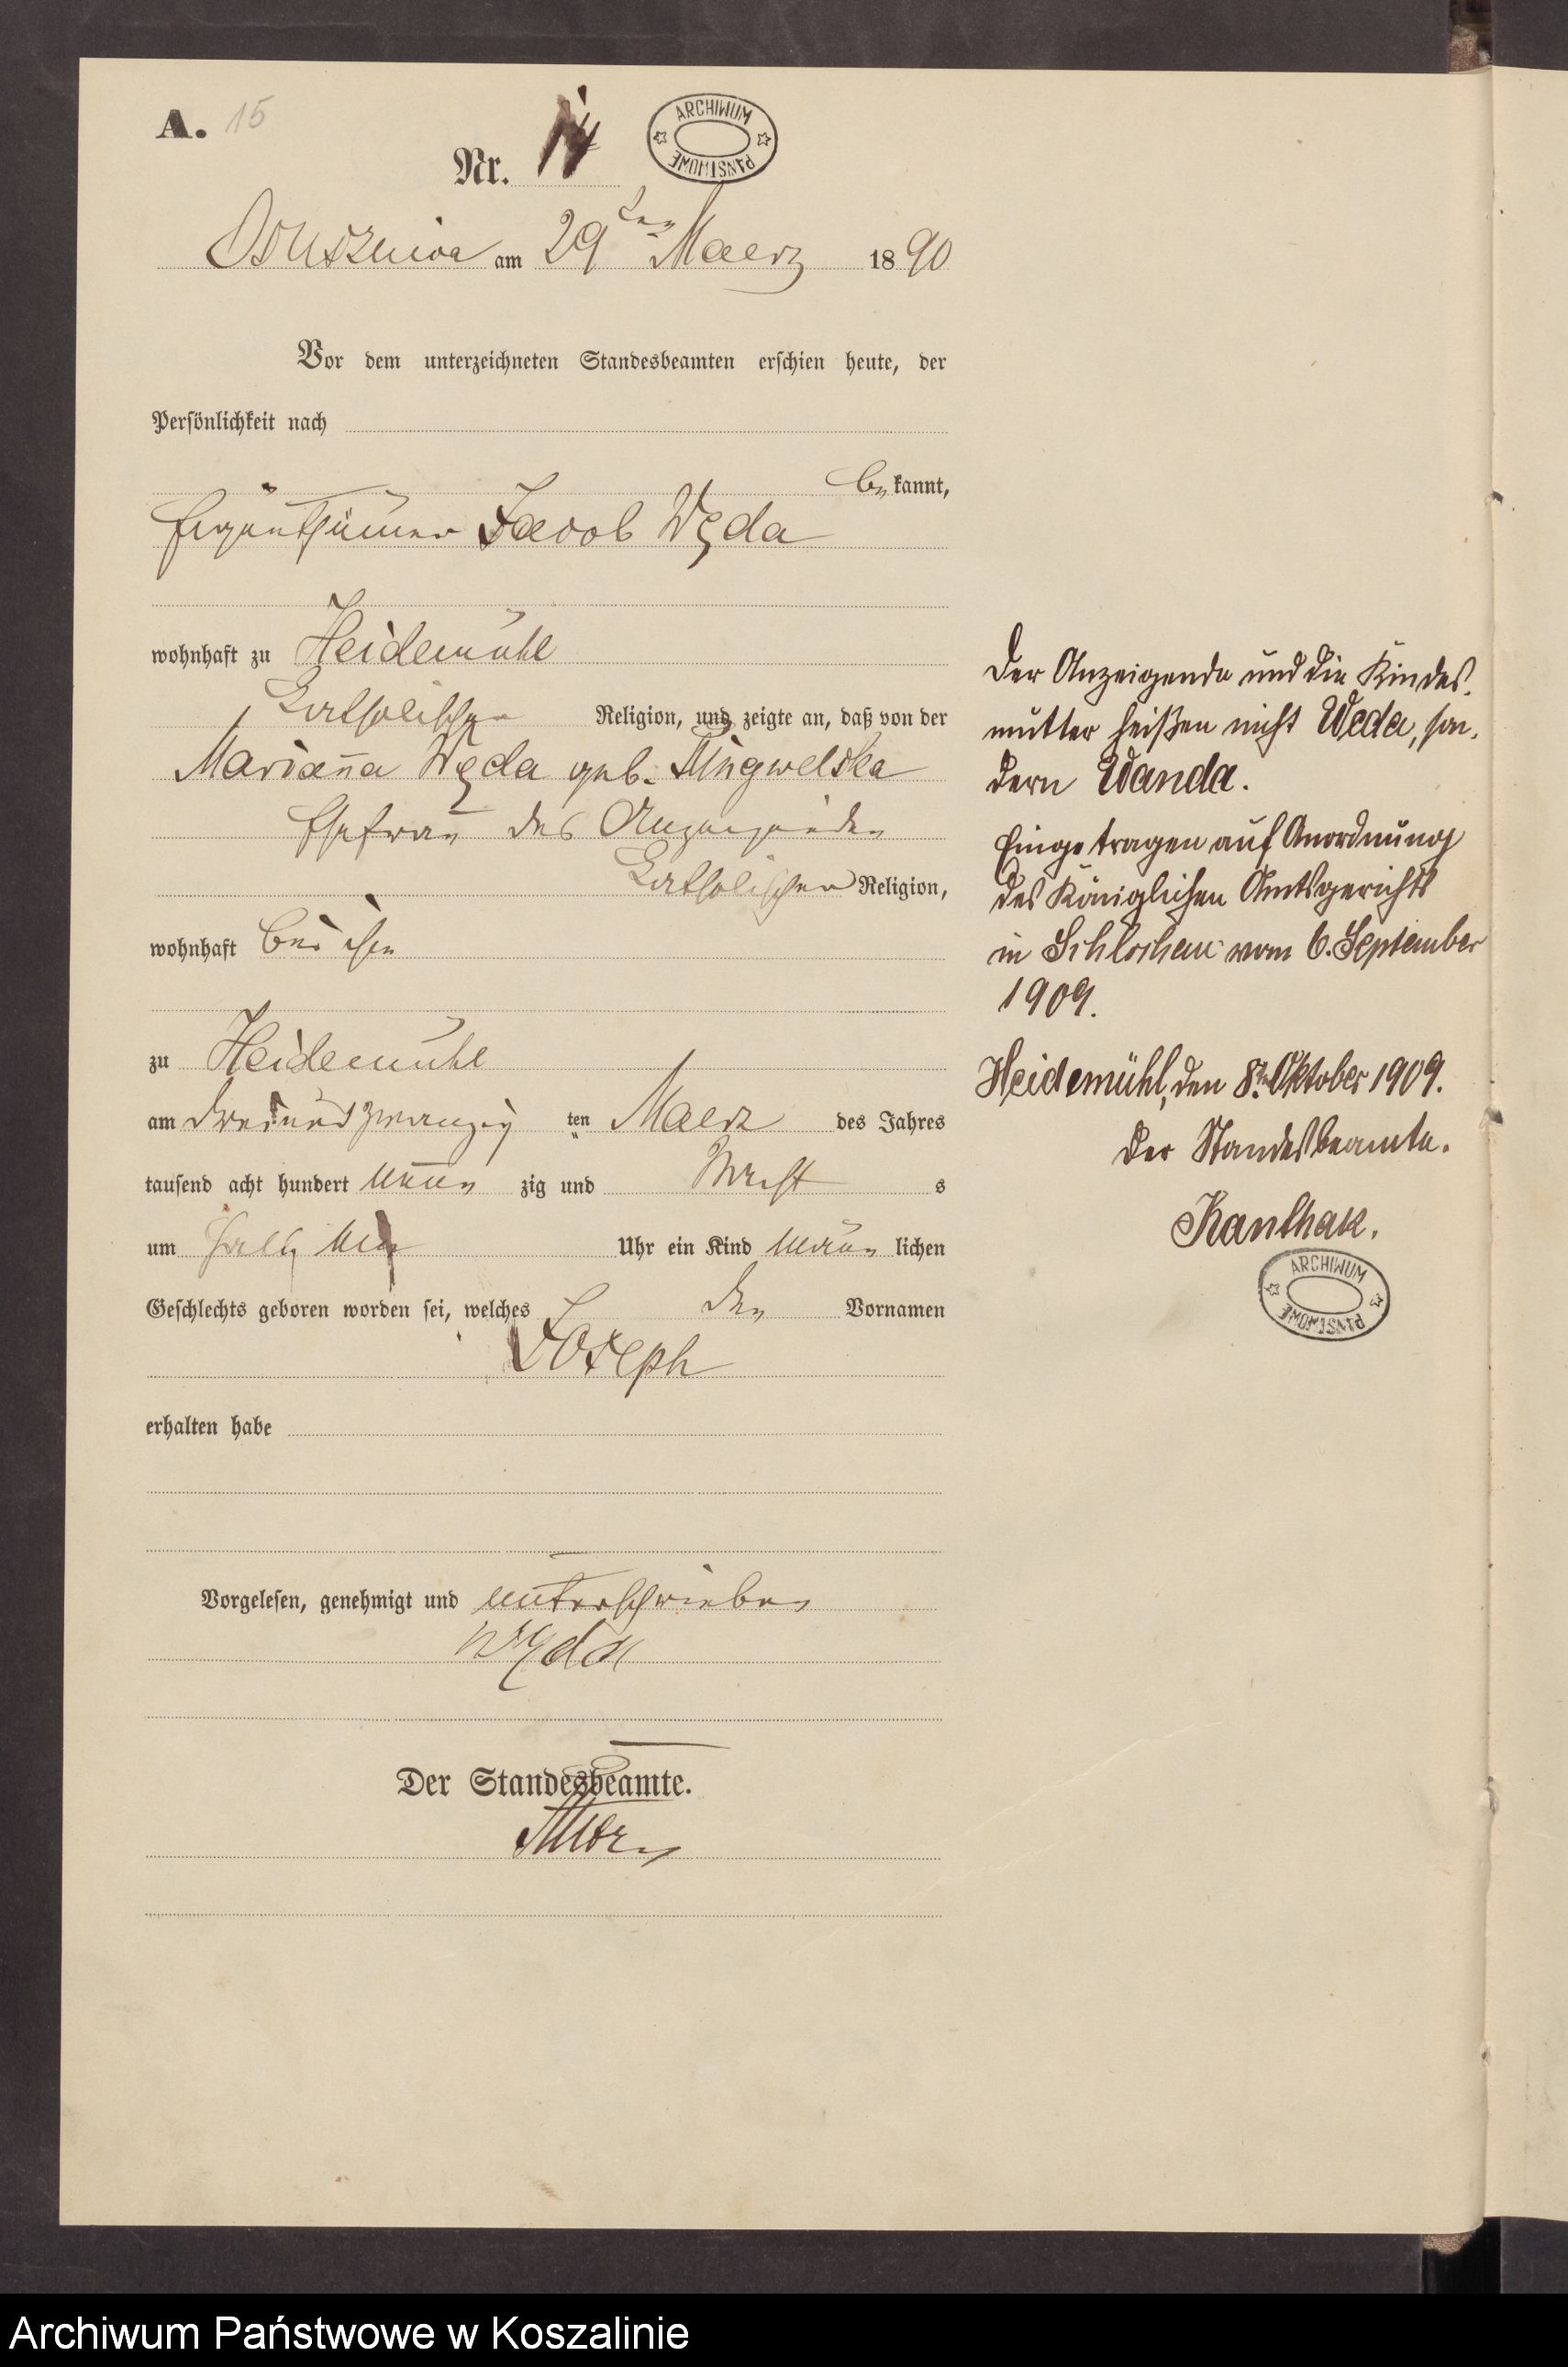 A. 15
Nr. 14
ARCHIWUM PAŃSTWOWE
Osuszniza am 29ten Maerz 1890
Vor dem unterzeichneten Standesbeamten erschien heute, der
Persönlichkeit nach
bekannt,
Eigenthümer Jacob Węda
wohnhaft zu Heidemühl
katholischer Religion, und zeigte an, daß von der
Marianna Węda geb.
Ehefrau des Anzeigenden
katholischer Religion,
wohnhaft bei ihm
zu Heidemühl
am dreiundzwanzig ten Maerz des Jahres
tausend acht hundert neun zig und s
um halb Uhr ein Kind männlichen
Geschlechts geboren worden sei, welches den Vornamen
Joseph
erhalten habe
Vorgelesen, genehmigt und unterschrieben
Węda
Der Standesbeamte.
Der Anzeigende und die Kindes-
mutter heißen nicht Weda, son-
dern Wanda.
Eingetragen auf Anordnung
des Königlichen Amtsgerichts
in Schlochau vom 6. September
1909.
Heidemühl, den 8ten Oktober 1909.
Der Standesbeamte.
Kanthak.
ARCHIWUM PAŃSTWOWE
Archiwum Państwowe w Koszalinie